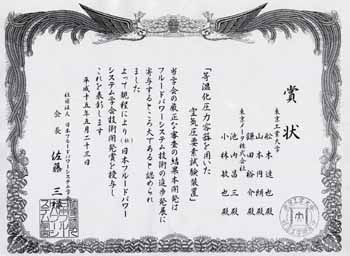 賞状
東京工業大学
松本達也殿
山本円朗殿
鎌田裕介殿
東京メータ株式会社
池内昌三殿
小林敏也殿
「等温化圧力容器を用いた
空気圧要素試験装置」
当学会の厳正な審査の結果本開発は
フルードパワーシステム技術の進歩発展に
寄与するところ大であると認められ
ました
よって規程により(社)日本フルードパワー
システム学会技術開発賞を授与し
これを表彰します
平成十五年五月二十三日
社団法人 日本フルードパワーシステム学会
会長 佐藤三